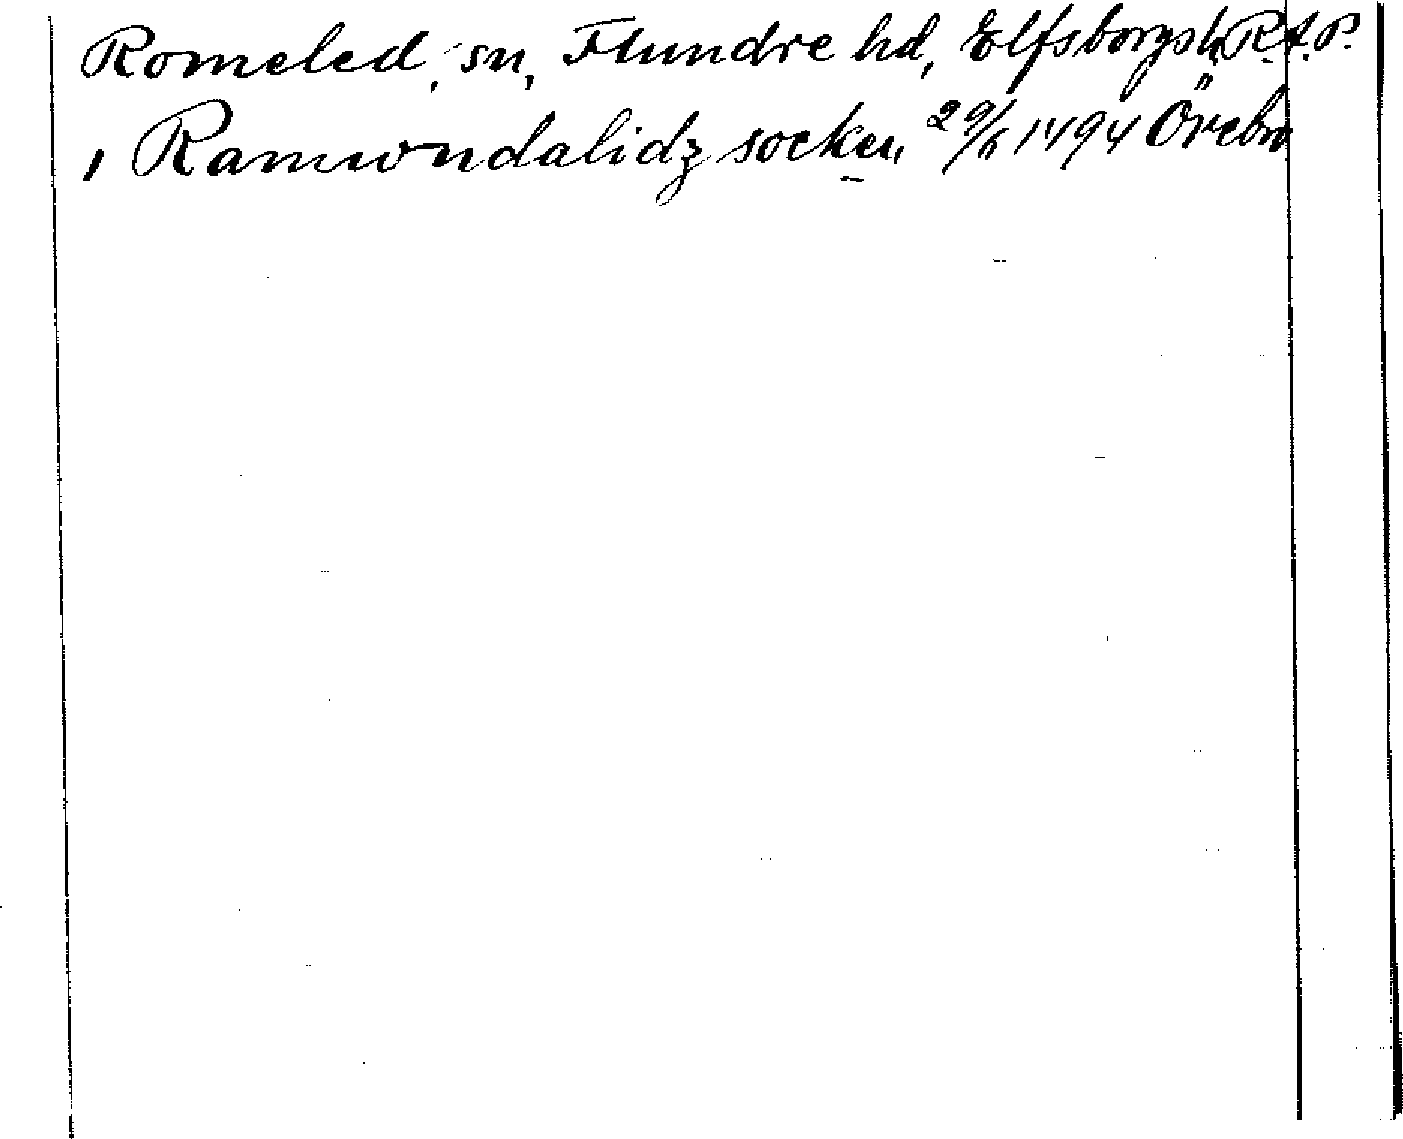 Romeled, sn, Flundre hd, Elfsborgsl, R.A.P.
, Ramwndalidz socken, 29/6 1494 Örebro